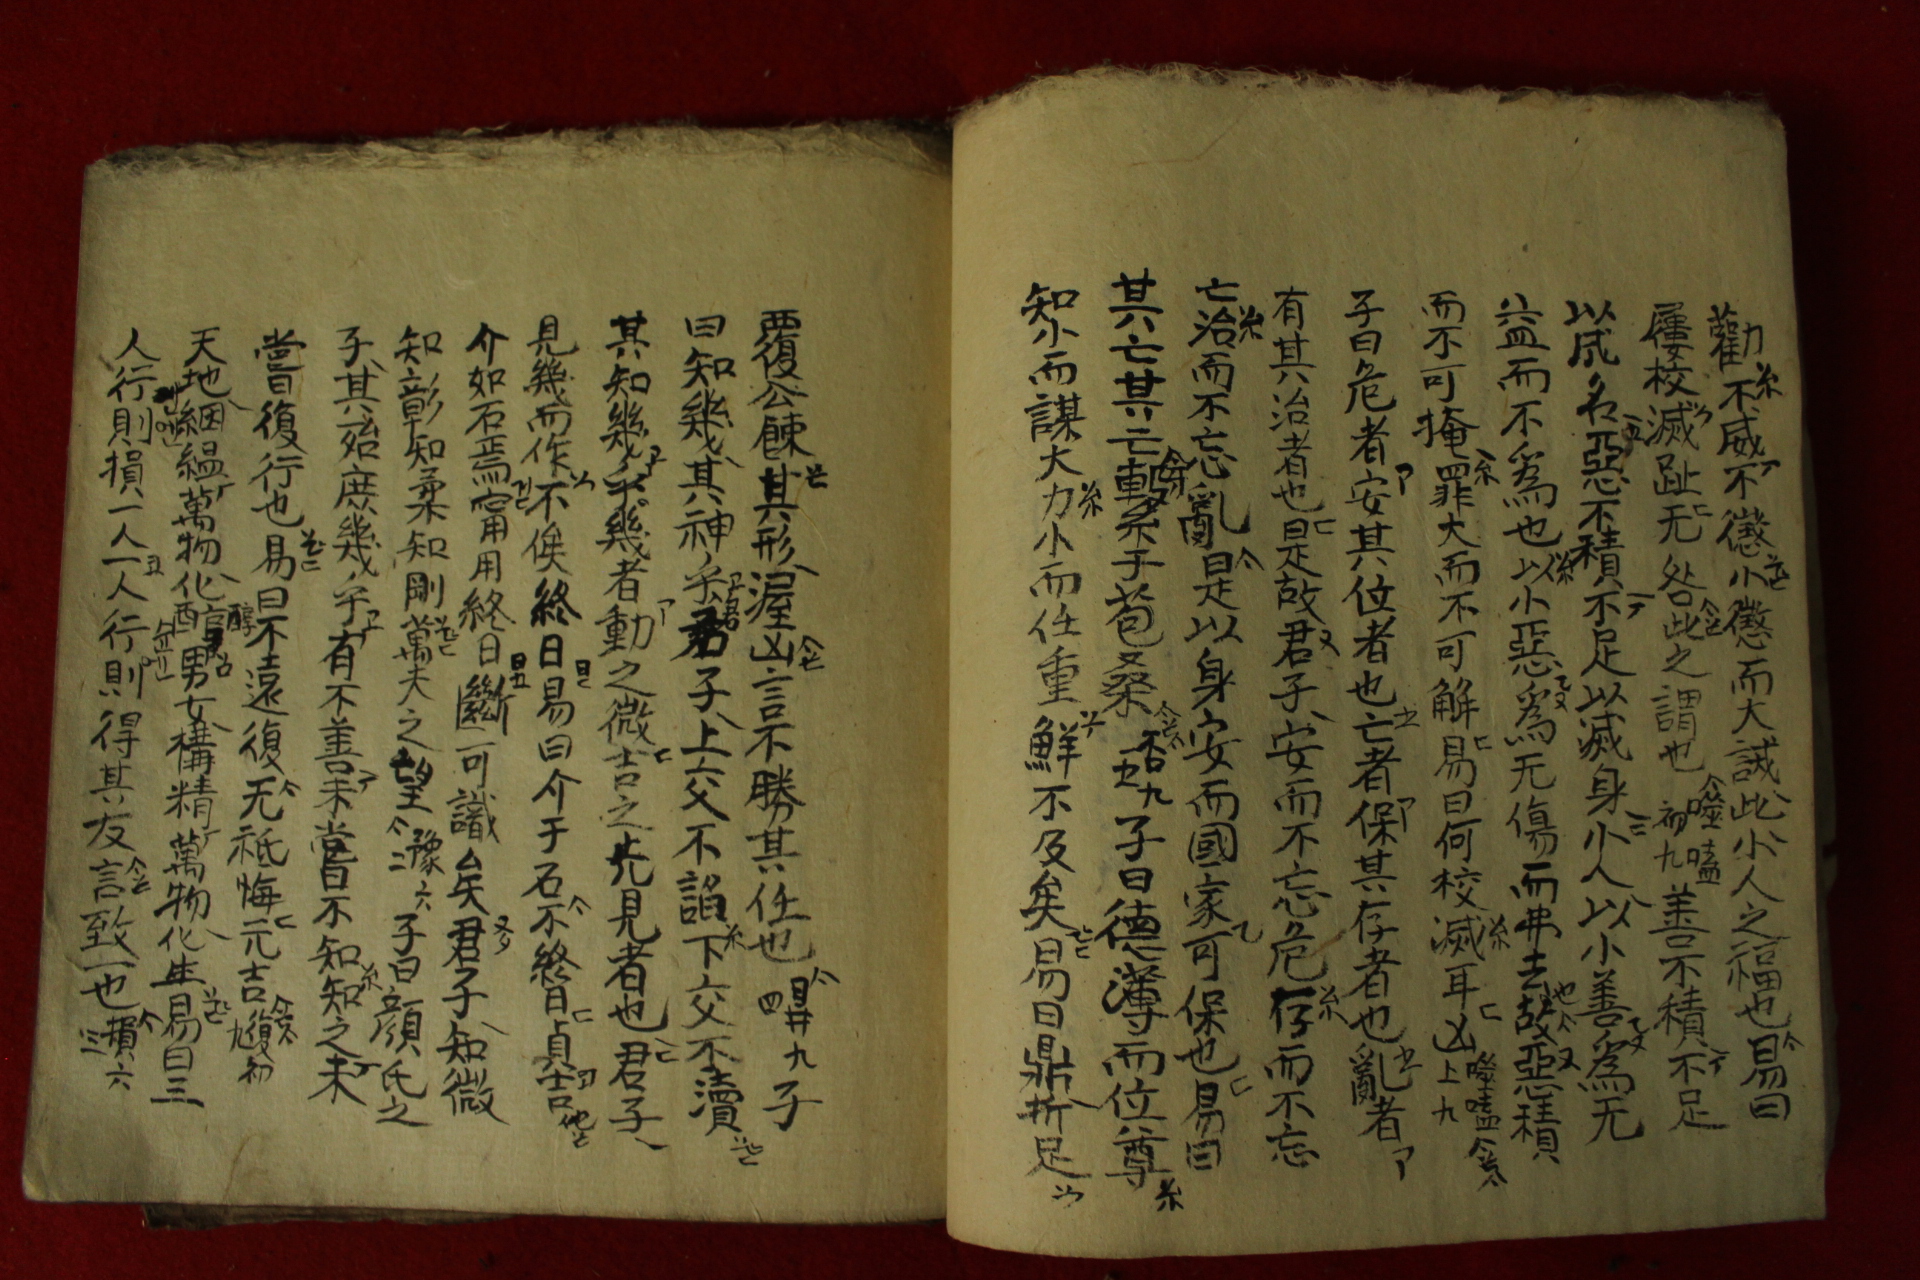 勸不威不懲小懲而大誡此小人之福也易曰
屨校滅趾无咎此之謂也噬嗑初九善不積不足
以成名惡不積不足以滅身小人以小善爲无
益而不爲也以小惡爲无傷而弗去故惡積
而不可掩罪大而不可解易曰何校滅耳凶噬嗑上九
子曰危者安其位者也亡者保其存者也亂者
有其治者也是故君子安而不忘危存而不忘
亡治而不忘亂是以身安而國家可保也易曰
其亡其亡繫于苞桑否九五子曰德薄而位尊
知小而謀大力小而任重鮮不及矣易曰鼎折足
覆公餗其形渥凶言不勝其任也鼎九四子
曰知幾其神乎君子上交不諂下交不瀆
其知幾乎幾者動之微吉之先見者也君子
見幾而作不俟終日易曰介于石不終日貞吉
介如石焉甯用終日斷可識矣君子知微
知彰知柔知剛萬夫之望豫六二子曰顔氏之
子其殆庶幾乎有不善未嘗不知知之未
嘗復行也易曰不遠復无祇悔元吉復初九
天地絪縕萬物化醇男女構精萬物化生易曰三
人行則損一人一人行則得其友言致一也損六三